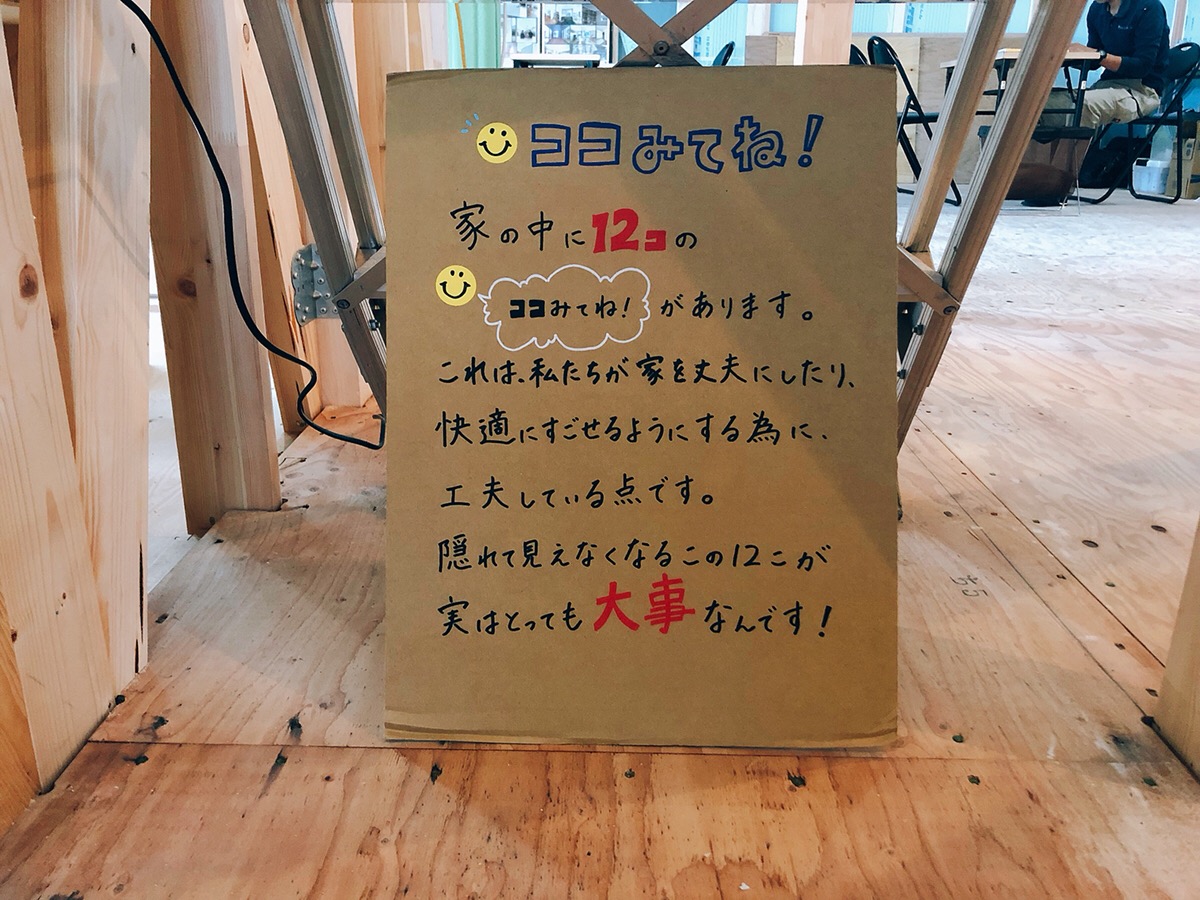 ココみてね!
家の中に12コの
ココみてね! があります。
これは、私たちが家を丈夫にしたり、
快適にすごせるようにする為に、
工夫している点です。
隠れて見えなくなるこの12こが
実はとっても大事なんです!